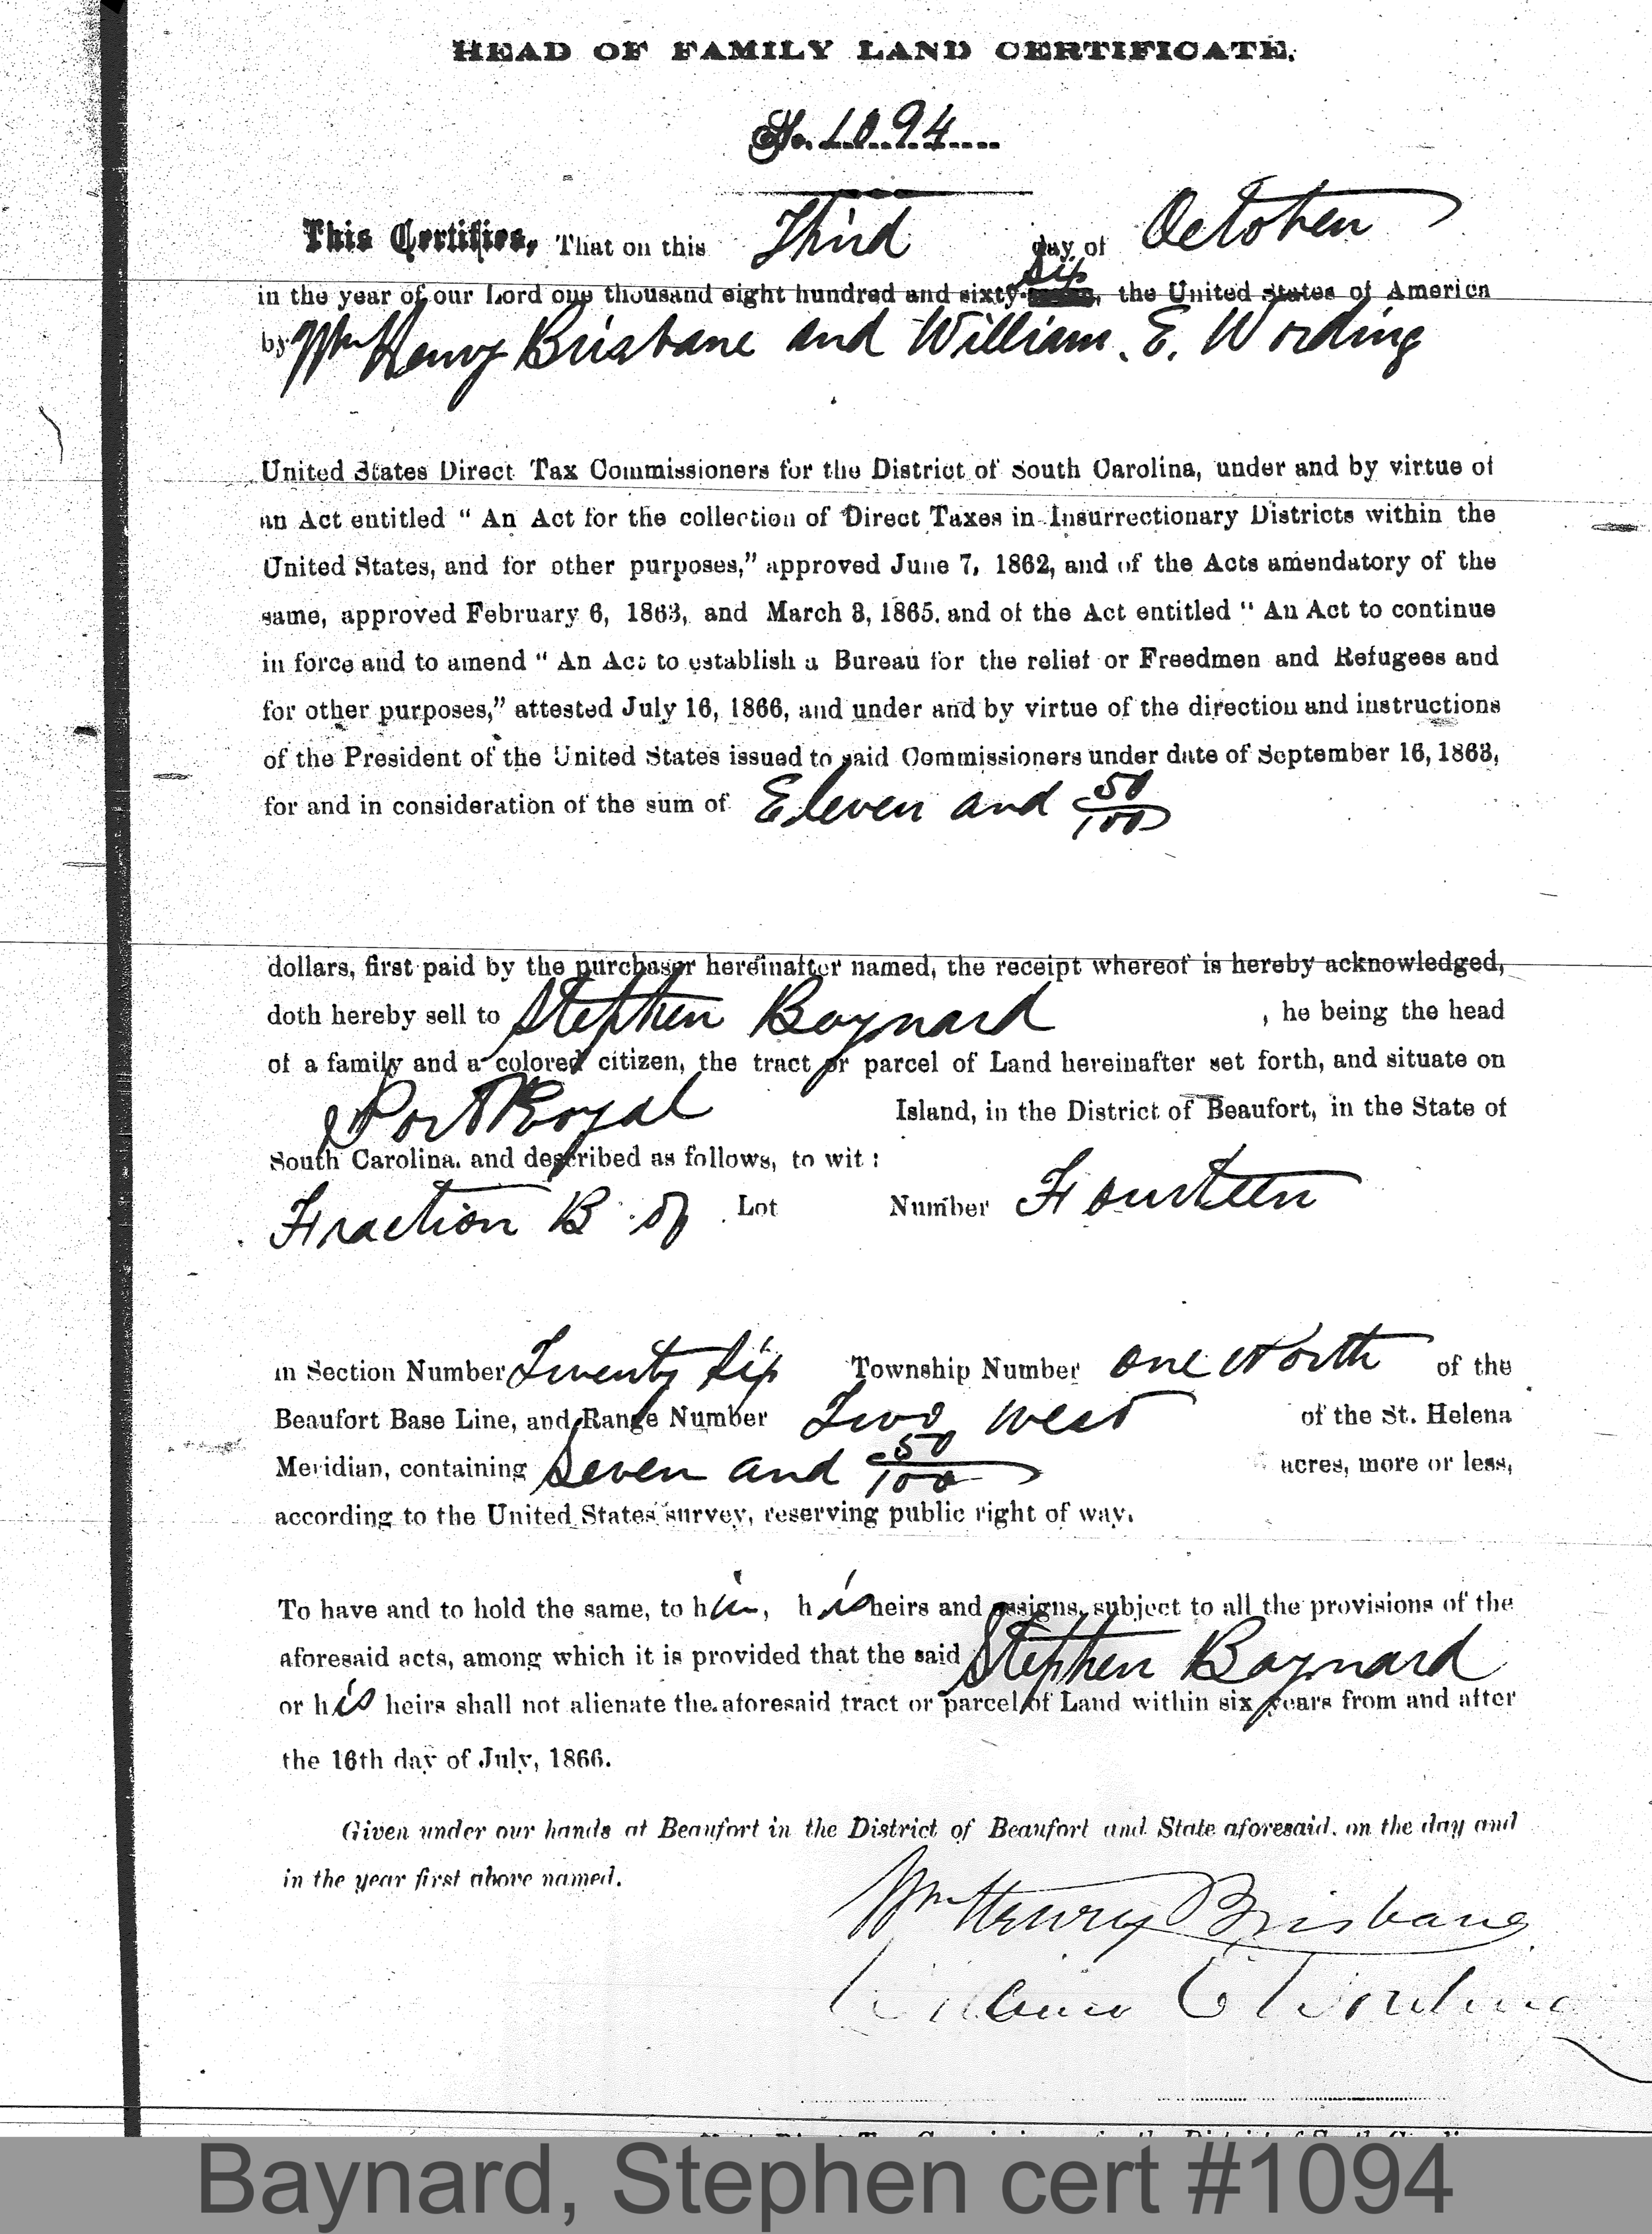 HEAD OF FAMILY LAND CERTIFICATE.
No. 1094
This Certifies, That on this Third day of October
in the year of our Lord one thousand eight hundred and sixty-six, the United States of America
by Wm Henry Brisbane and William. E. Wording
United States Direct Tax Commissioners for the District of South Carolina, under and by virtue of
an Act entitled “ An Act for the collection of Direct Taxes in Insurrectionary Districts within the
United States, and for other purposes,” approved June 7, 1862, and of the Acts amendatory of the
same, approved February 6, 1863, and March 3, 1865. and of the Act entitled “ An Act to continue
in force and to amend “ An Act to establish a Bureau for the relief or Freedmen and Refugees and
for other purposes,” attested July 16, 1866, and under and by virtue of the direction and instructions
of the President of the United States issued to said Commissioners under date of September 16, 1863,
for and in consideration of the sum of Eleven and 50/100
dollars, first paid by the purchaser hereinafter named, the receipt whereof is hereby acknowledged,
doth hereby sell to Stephen Baynard , he being the head
of a family and a colored citizen, the tract or parcel of Land hereinafter set forth, and situate on
Port Royal Island, in the District of Beaufort, in the State of
South Carolina. and described as follows, to wit :
Fraction B of Lot Number Fourteen
in Section Number Twenty six Township Number one North of the
Beaufort Base Line, and Range Number Two West of the St. Helena
Meridian, containing Seven and 50/100 acres, more or less,
according to the United States survey, reserving public right of way.
To have and to hold the same, to him, his heirs and assigns, subject to all the provisions of the
aforesaid acts, among which it is provided that the said Stephen Baynard
or his heirs shall not alienate the aforesaid tract or parcel of Land within six years from and after
the 16th day of July, 1866.
Given under our hands at Beaufort in the District of Beaufort and State aforesaid. on the day and
in the year first above named.
Wm Henry Brisbane
William E Wording
Baynard, Stephen cert #1094